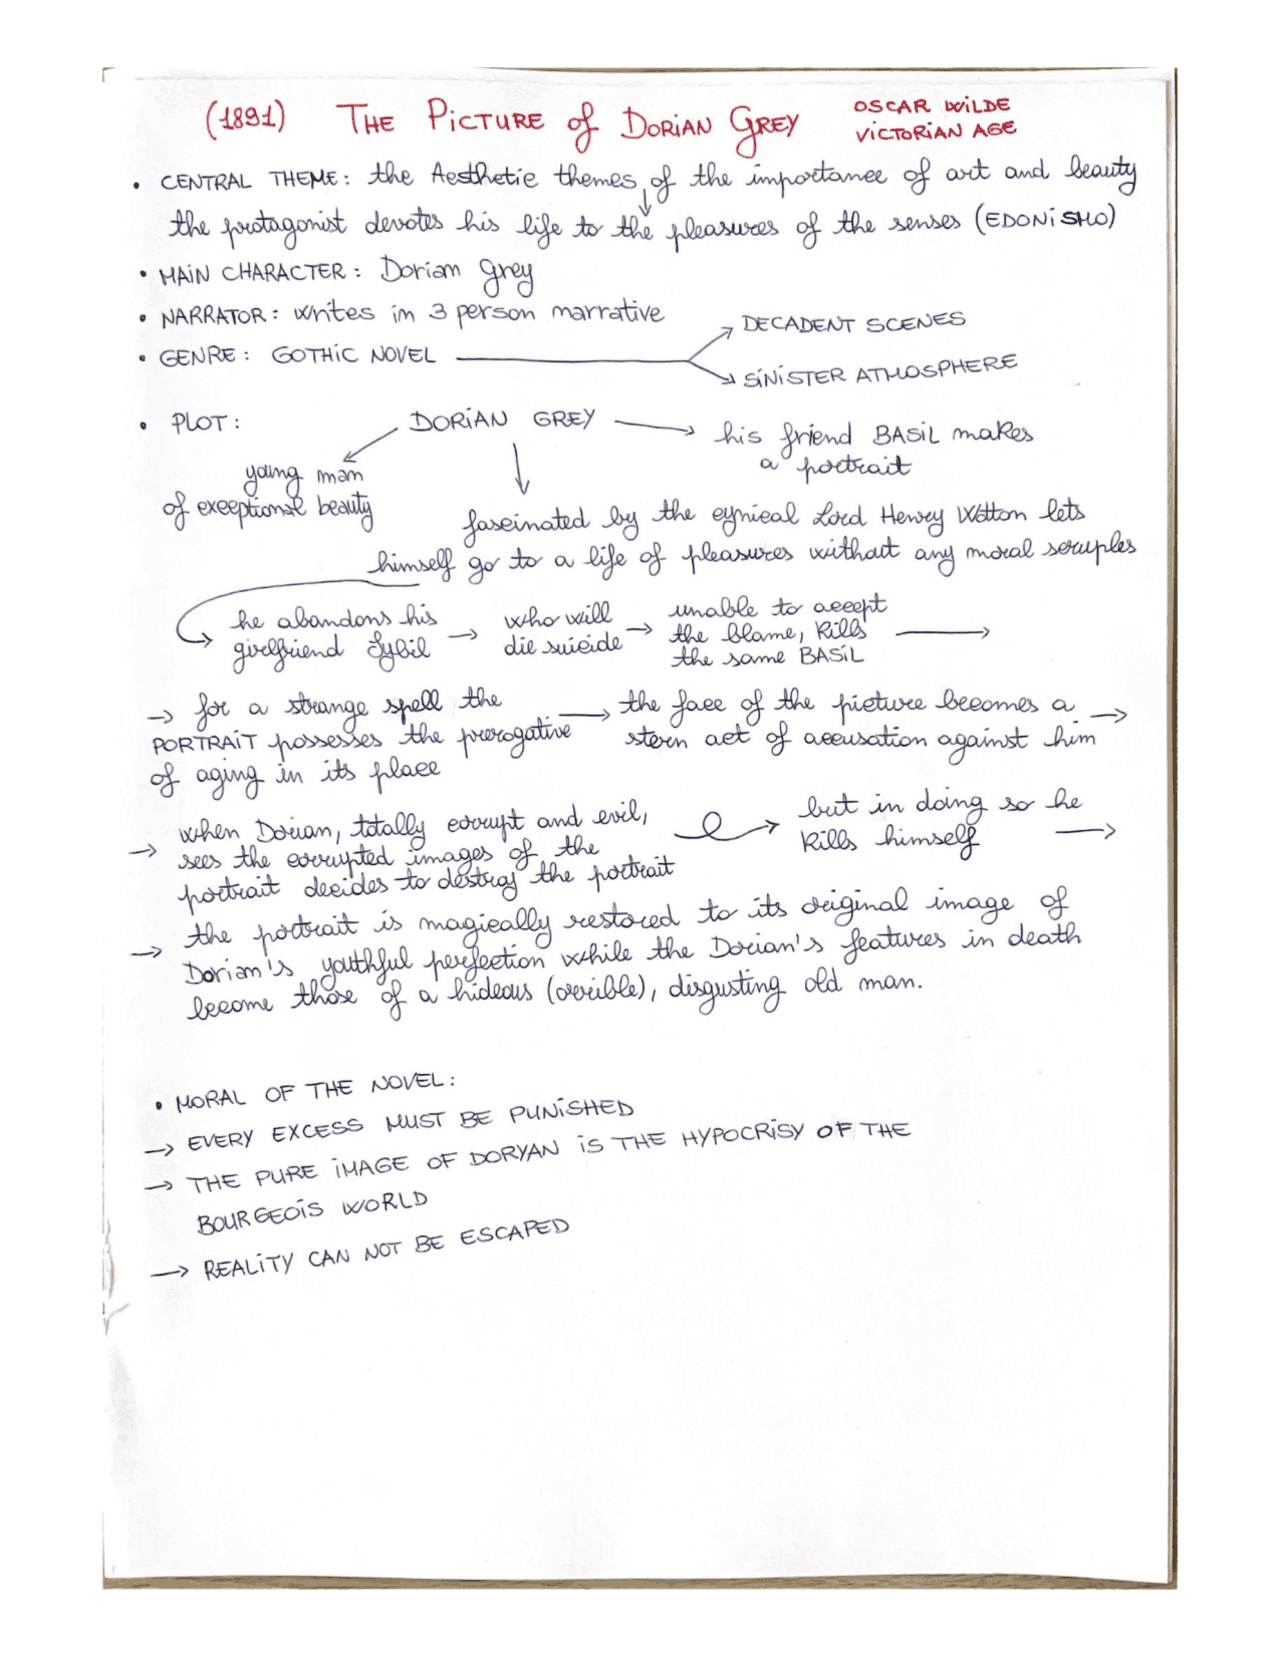 (1891) THE PICTURE of DORIAN GREY
OSCAR WILDE
VICTORIAN AGE
• CENTRAL THEME: the Aesthetic themes of the importance of art and beauty
the protagonist devotes his life to the pleasures of the senses (EDONISMO)
• MAIN CHARACTER: Dorian Grey
• NARRATOR: writes in 3 person narrative
• GENRE: GOTHIC NOVEL
DECADENT SCENES
SINISTER ATMOSPHERE
• PLOT: DORIAN GREY → his friend BASIL makes
a portrait
young man
of exceptional beauty
fascinated by the cynical Lord Henry Wotton lets
himself go to a life of pleasures without any moral scruples
he abandons his
girlfriend Sybil →
who will
die suicide →
unable to accept
the blame, kills
the same BASIL →
→ for a strange spell the
PORTRAIT possesses the prerogative
of aging in its place
→ the face of the picture becomes a
stern act of accusation against him →
→ when Dorian, totally corrupt and evil,
sees the corrupted images of the
portrait decides to destroy the portrait
→ but in doing so he
kills himself →
→ the portrait is magically restored to its original image of
Dorian's youthful perfection while the Dorian's features in death
become those of a hideous (orrible), disgusting old man.
• MORAL OF THE NOVEL:
→ EVERY EXCESS MUST BE PUNISHED
→ THE PURE IMAGE OF DORYAN IS THE HYPOCRISY OF THE
BOURGEOIS WORLD
→ REALITY CAN NOT BE ESCAPED